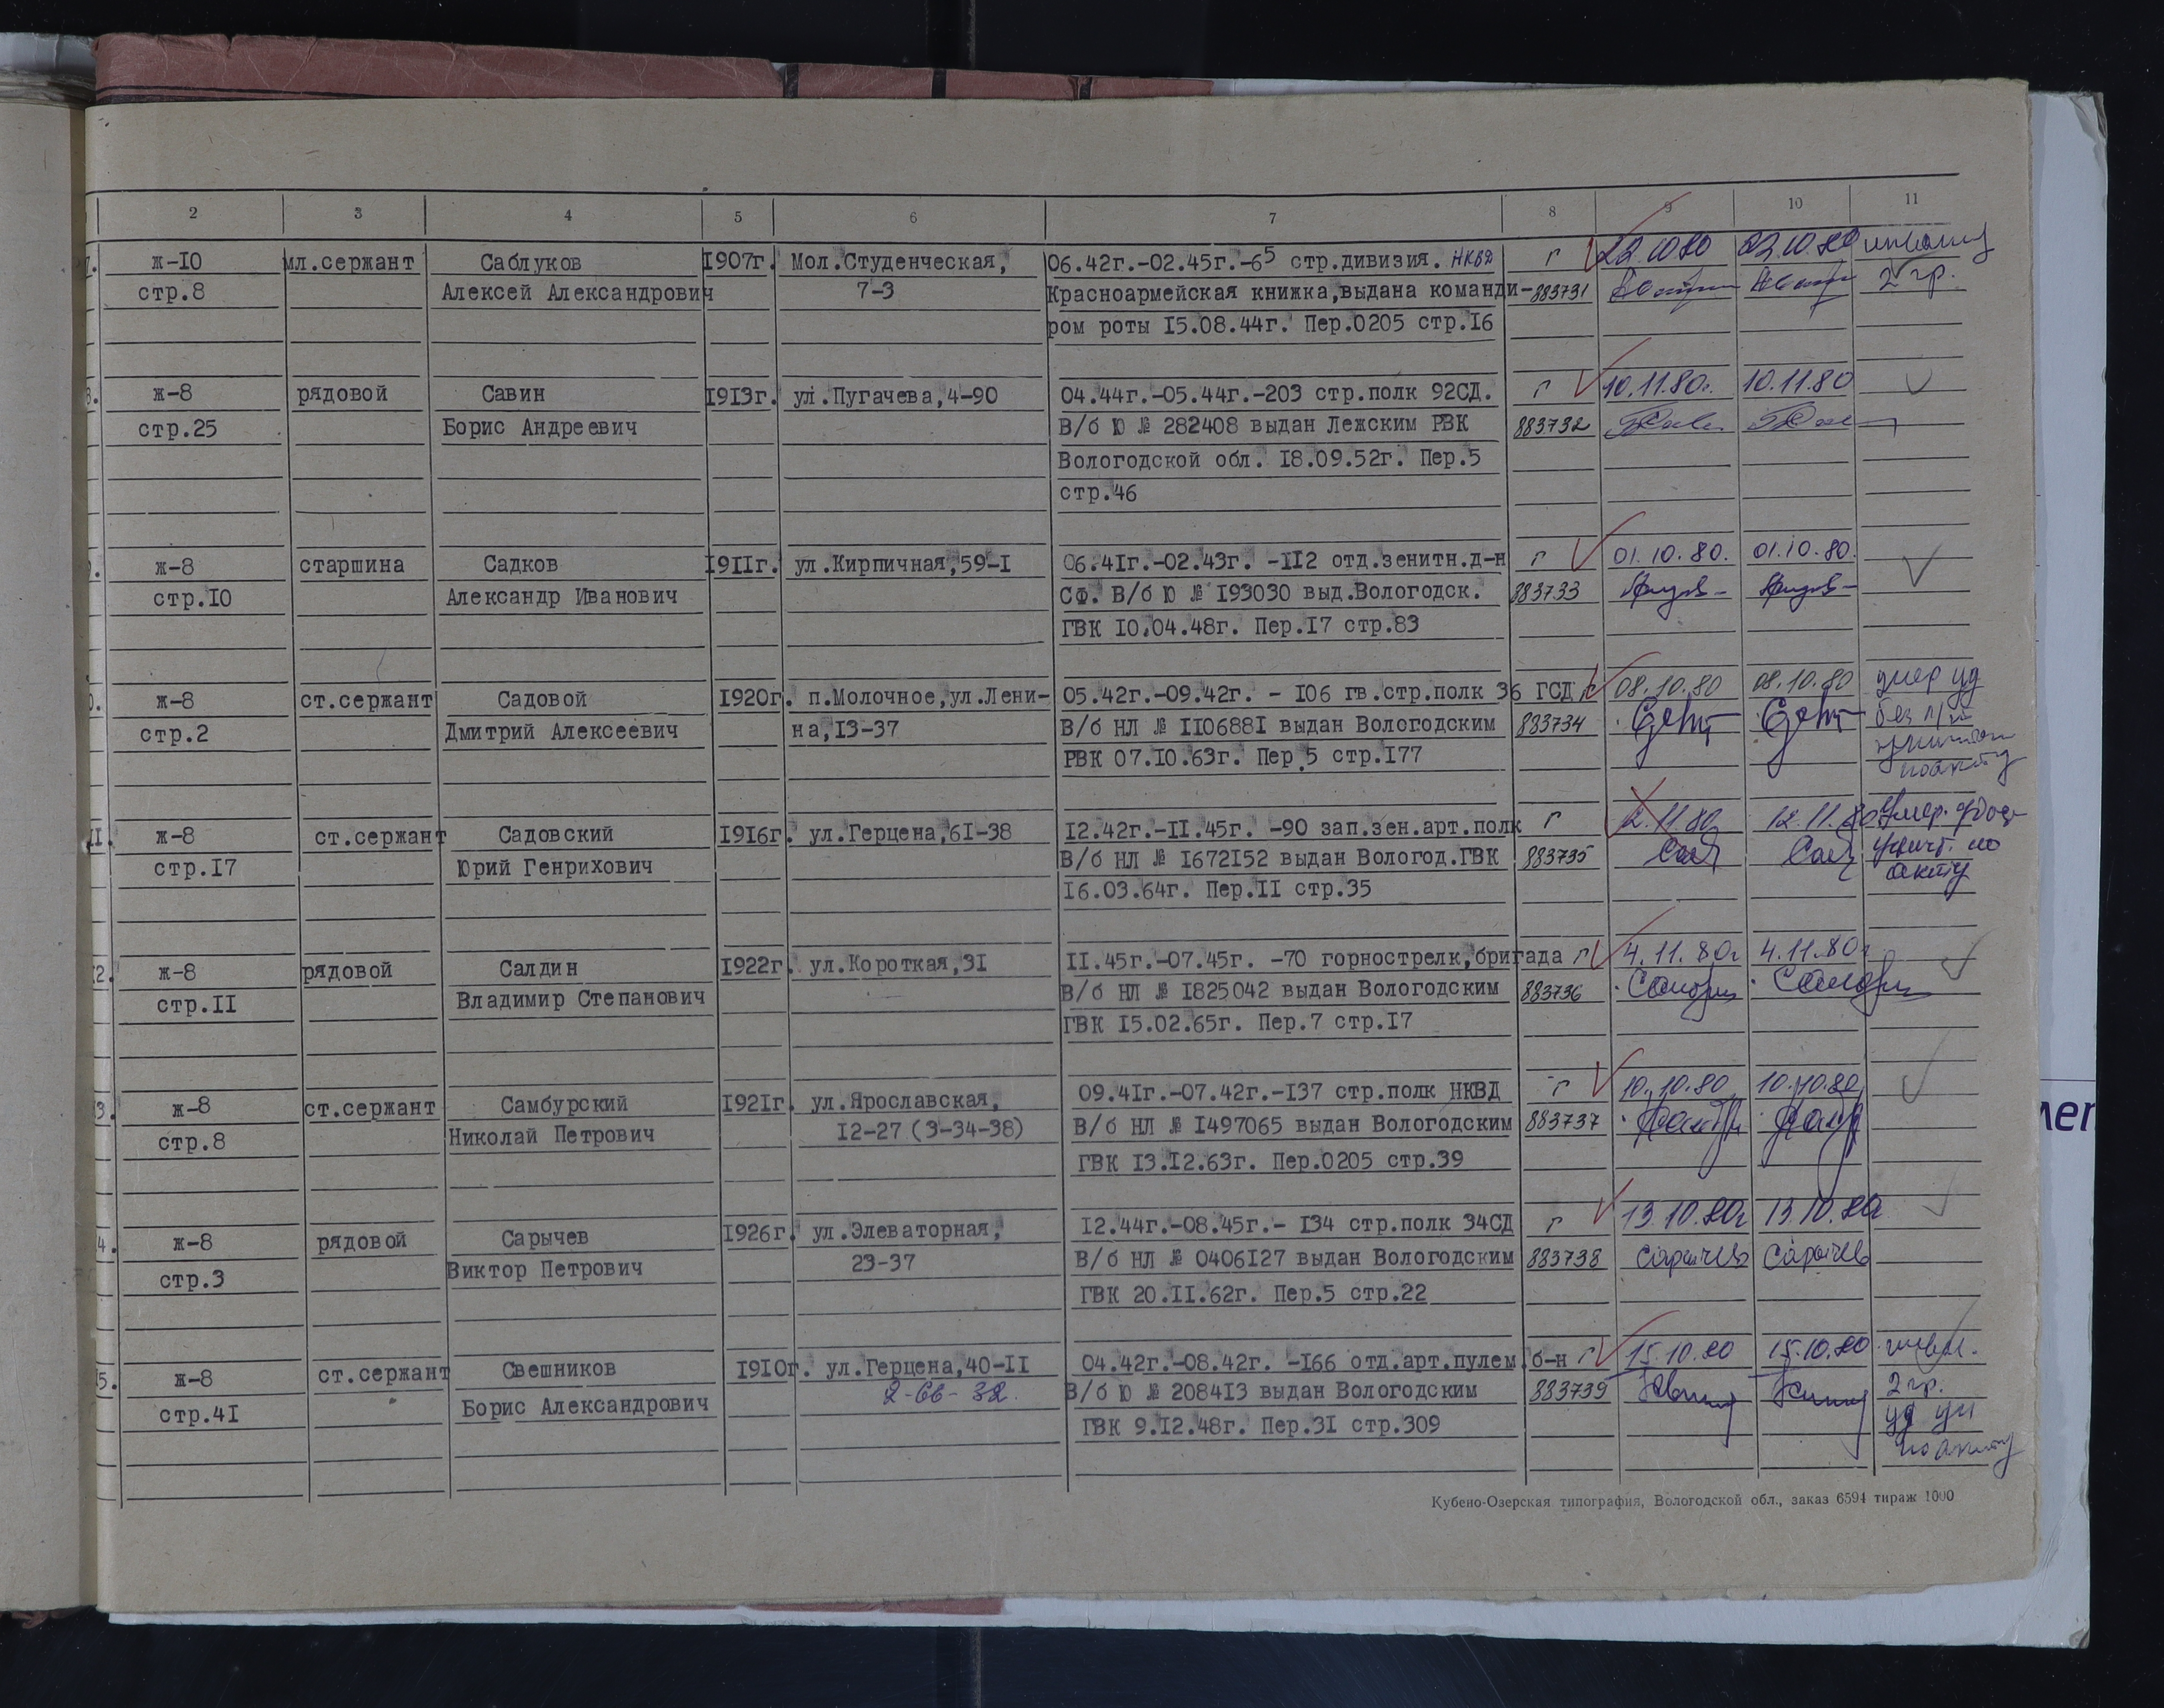 2 3 4 5 6 7 8 9 10 11
ж-10 мл.сержант Саблуков 1907г. Мол.Студенческая, 06.42г.-02.45г.-65 стр.дивизия. НКВД г 22.10.80 22.10.80 инвалид
стр.8 Алексей Александрович 7-3 Красноармейская книжка,выдана команди- 883731 2 гр.
ром роты 15.08.44г. Пер.0205 стр.16
ж-8 рядовой Савин 1913г. ул.Пугачева,4-90 04.44г.-05.44г.-203 стр.полк 92СД. г 10.11.80г. 10.11.80
стр.25 Борис Андреевич В/б Ю № 282408 выдан Лежским РВК 883732
Вологодской обл. 18.09.52г. Пер.5
стр.46
ж-8 старшина Садков 1911г. ул.Кирпичная,59-1 06.41г.-02.43г. -112 отд.зенитн.д-н г 01.10.80. 01.10.80.
стр.10 Александр Иванович СФ. В/б Ю № 193030 выд.Вологодск. 883733
ГВК 10.04.48г. Пер.17 стр.83
ж-8 ст.сержант Садовой 1920г. п.Молочное,ул.Лени- 05.42г.-09.42г. - 106 гв.стр.полк 36 ГСД г 08.10.80 08.10.80 умер уд
стр.2 Дмитрий Алексеевич на,13-37 В/б НЛ № 1106881 выдан Вологодским 883734 без
РВК 07.10.63г. Пер.5 стр.177
по акту
11. ж-8 ст.сержант Садовский 1916г. ул.Герцена,61-38 12.42г.-11.45г. -90 зап.зен.арт.полк г 12.11.80 12.11.80 Умер.
стр.17 Юрий Генрихович В/б НЛ № 1672152 выдан Вологод.ГВК 883735 Сад Сад уничт. по
16.03.64г. Пер.11 стр.35 акту
2. ж-8 рядовой Салдин 1922г. ул.Короткая,31 11.45г.-07.45г. -70 горнострелк,бригада г 4.11.80г 4.11.80г
стр.11 Владимир Степанович В/б НЛ № 1825042 выдан Вологодским 883736
ГВК 15.02.65г. Пер.7 стр.17
3. ж-8 ст.сержант Самбурский 1921г. ул.Ярославская, 09.41г.-07.42г.-137 стр.полк НКВД г 10.10.80 10.10.80
стр.8 Николай Петрович 12-27 (3-34-38) В/б НЛ № 1497065 выдан Вологодским 883737
ГВК 13.12.63г. Пер.0205 стр.39
4. ж-8 рядовой Сарычев 1926г. ул.Элеваторная, 12.44г.-08.45г.- 134 стр.полк 34СД г 13.10.80г 13.10.80г
стр.3 Виктор Петрович 23-37 В/б НЛ № 0406127 выдан Вологодским 883738 Сарычев Сарычев
ГВК 20.11.62г. Пер.5 стр.22
5. ж-8 ст.сержант Свешников 1910г. ул.Герцена,40-11 04.42г.-08.42г. -166 отд.арт.пулем.б-н г 15.10.80 15.10.80 инвал.
стр.41 Борис Александрович 2-66-32. В/б Ю № 208413 выдан Вологодским 883739 2 гр.
ГВК 9.12.48г. Пер.31 стр.309 уд ун
по акту
Кубено-Озерская типография, Вологодской обл., заказ 6594 тираж 1000